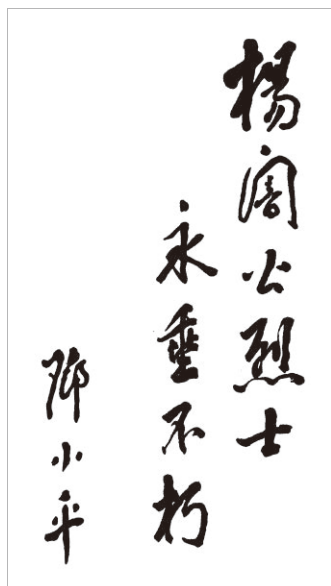 楊闇公烈士
永垂不朽
邓小平